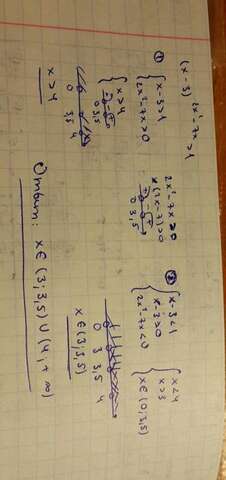 (x - 3)^{2x²-7x} > 1
①
{ x-3>1
2x²-7x>0
2x²-7x>0
x(2x-7)>0
+ - +
0 3,5
{ x>4
+ - +
0 3,5
0 3,5 4
x>4
②
{ x-3<1
x-3>0
2x²-7x<0
{ x<4
x>3
x∈(0;3,5)
0 3 3,5 4
x∈(3;3,5)
Ответ: x∈(3;3,5)∪(4;+∞)